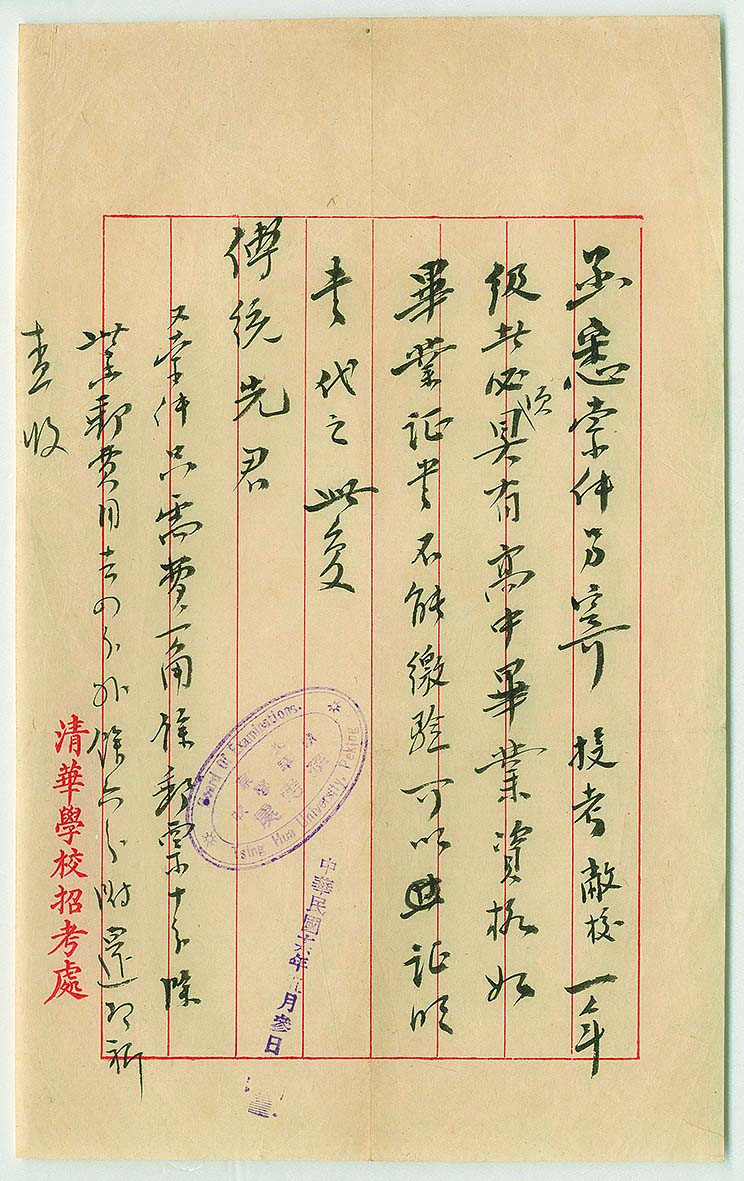 函悉索件另寄 投考敝校一年
級者必須具有高中畢業資格如
畢業证書不能繳验可以证明
書代之此复
傅統先君
又索件只需費一角餘郵票十分除
此函郵費用去四分外餘六分附還即祈
查收
清華學校招考處
Board of Examinations.
Tsing Hua University, Peking
中華民國六年 月參日